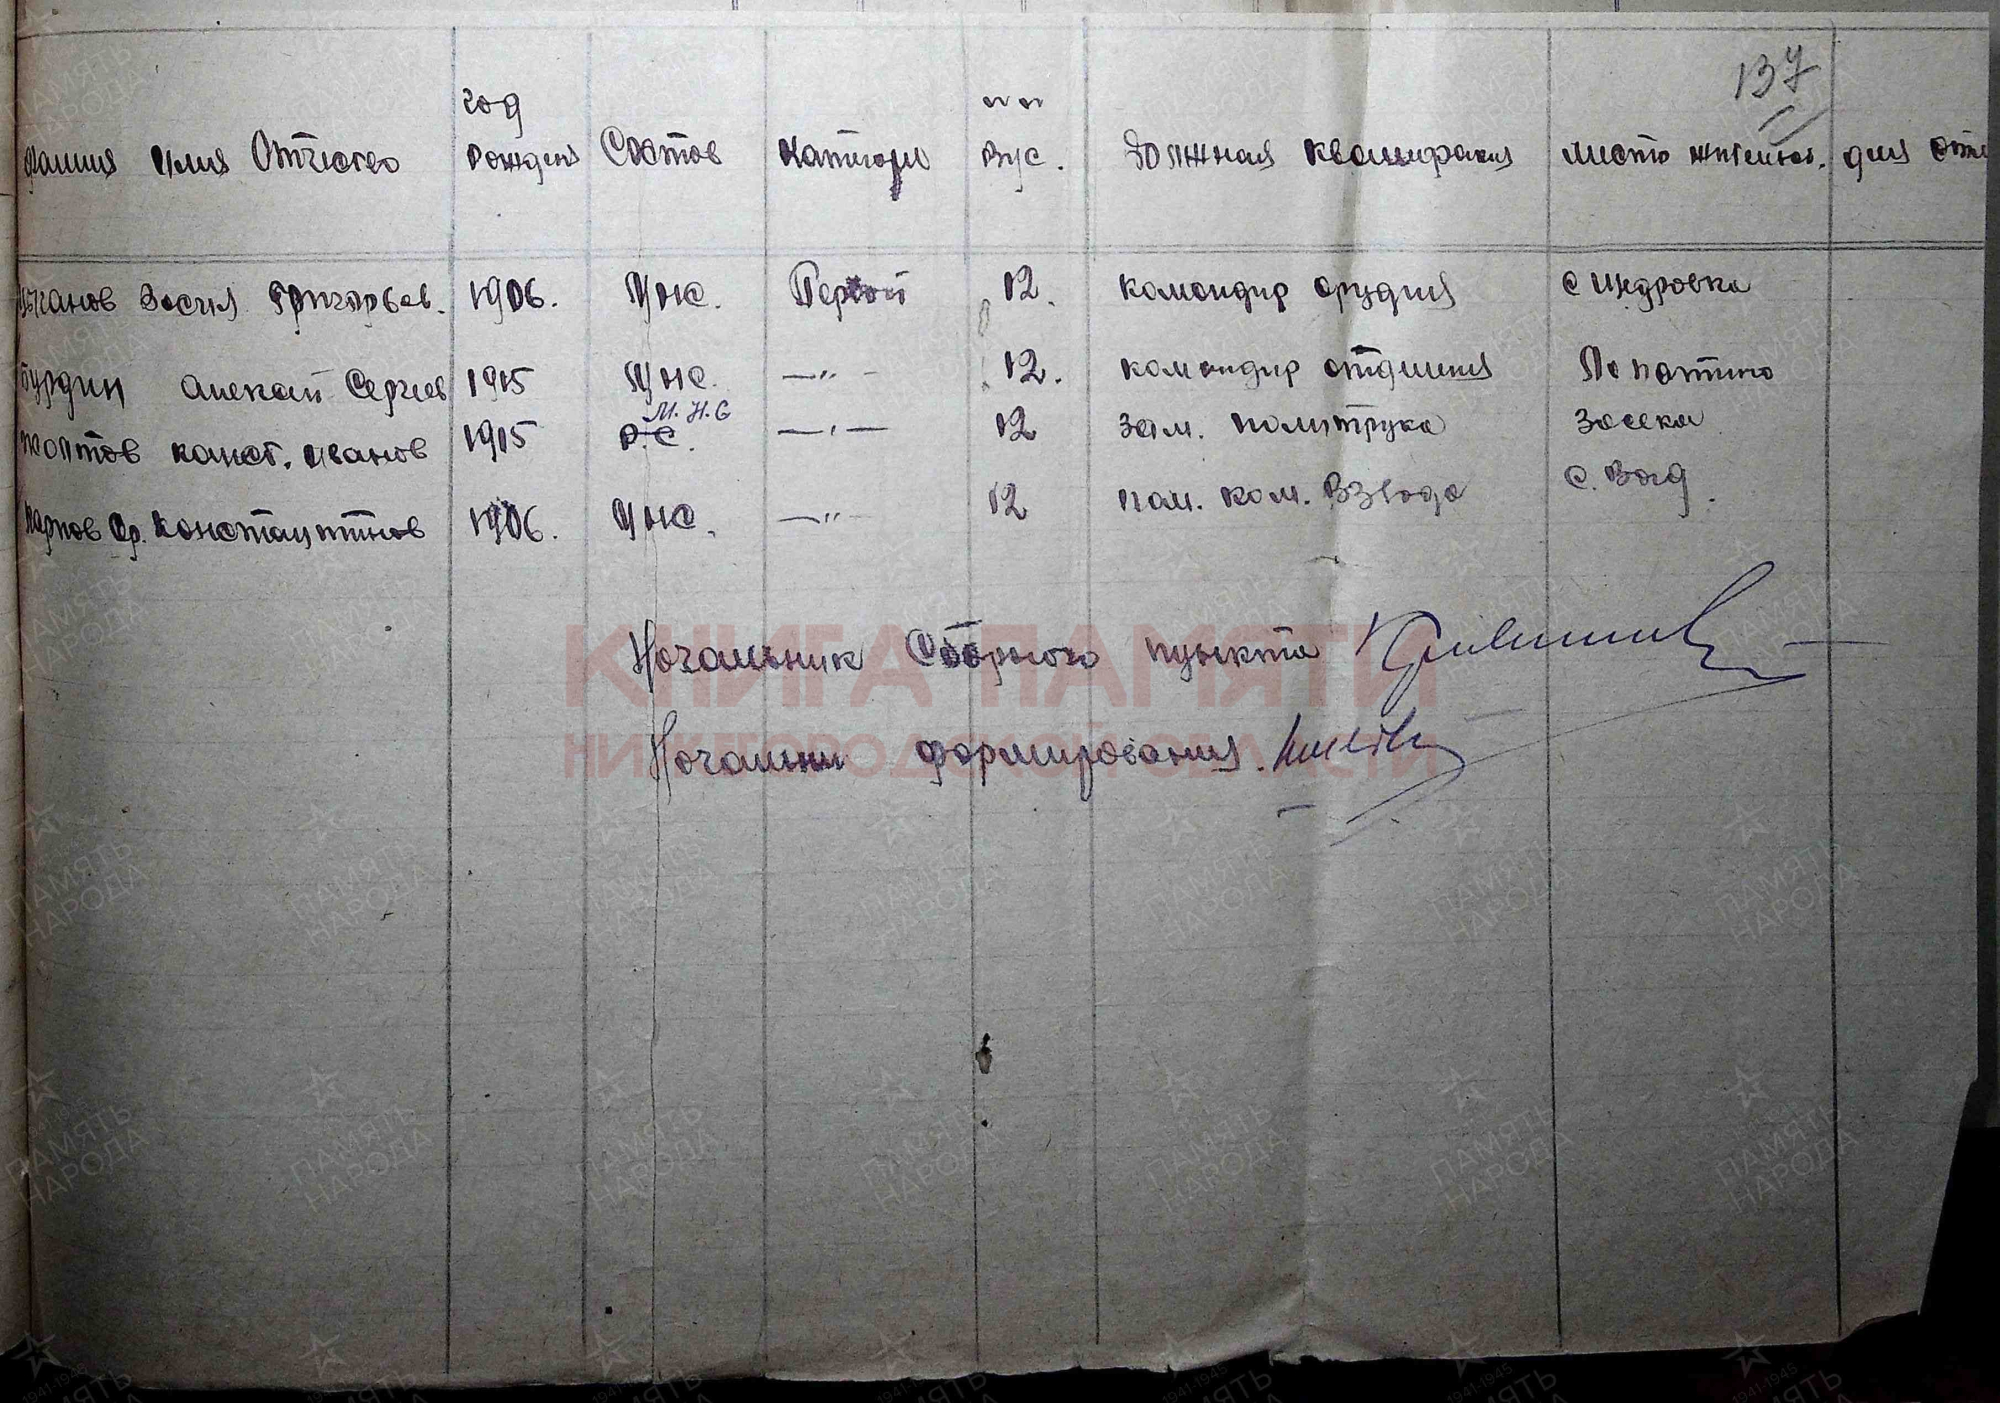 137
год
Фамилия Имя Отчество рожден Состов Категори Вус. Должная Квалификация место жительст. для отм
Василя Григорьев. 1906. Мнс. Первой 12. командир орудия с Щедровка
Бурдин Алексей Сергеев 1915 Мнс. —"— 12. командир отделения Лопатино
М.Н.С
Желтов Конст. Иванов 1915 Р.С. —"— 12 зам. политрука Засека
Карпов Ф. Константинов 1906. Мнс. —"— 12 пом. ком. Взвода с. Вад.
Начальник Сборного пункта
Начальник формирования.
КНИГА ПАМЯТИ
НИЖЕГОРОДСКОЙ ОБЛАСТИ
ПАМЯТЬ НАРОДА
1941-1945